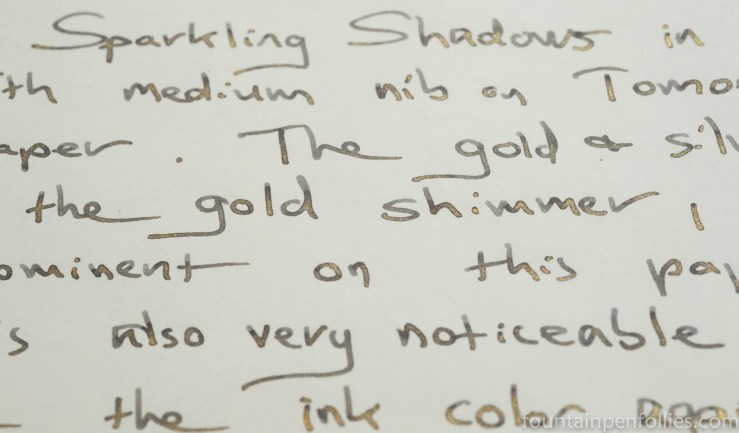 Sparkling Shadows in
th medium nib on Tomo
aper. The gold & silv
the gold shimmer,
ominent on this pap
s also very noticeable
the ink color
fountainpenfollies.com